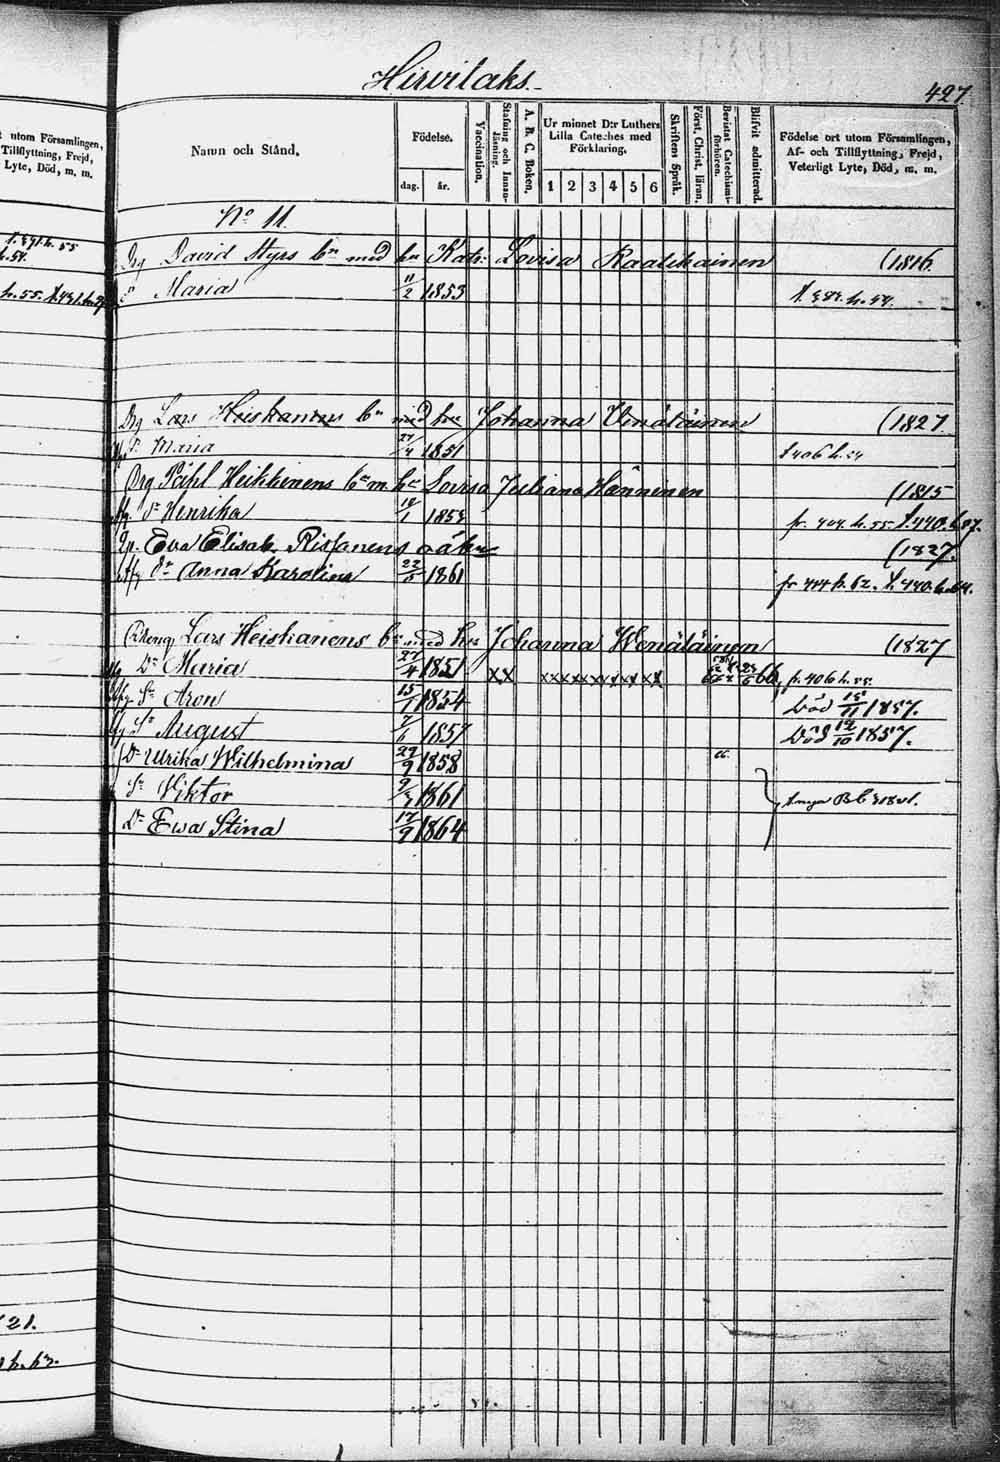 Hirvilaks.
427
t utom Församlingen,
Tillflyttning, Frejd,
Lyte, Död, m. m.
Namn och Stånd.
Födelse.
dag. år.
Vaccination.
Stafning och Innanläsning.
A. B. C. Boken.
Ur minnet D:r Luthers
Lilla Cateches med
Förklaring.
1 2 3 4 5 6
Skriftens Språk.
Först. Christ. läran.
Bevistat Catechismiförhören.
Blifvit admitterad.
Födelse ort utom Församlingen,
Af- och Tillflyttning, Frejd,
Veterligt Lyte, Död, m. m.
No 11.
David Hyrs bn med hu Kath: Lovisa Raatikainen (1816.
Maria 11/2 1853
h. 54.
h. 55.
Lars Heiskanens bn med hu Johanna Wenäläinen (1827.
Dr Maria 27/4 1851 t 406 h. 54
Påhl Heikkinens bn m. hu Lovisa Juliana Hänninen (1815
dr Henrika 10/1 1853 fr. 404. h. 55. t. 440. h. 57.
Eva Elisab. Rissanens oäkta (1827.
dr Anna Karolina 22/5 1861 fr 444 h. 62. t. 440. h. 64.
Lars Heiskanens bn med hu Johanna Wenäläinen (1827
Dr Maria 27/4 1851 x x x x x x x x x x x x fr. 406 h. 55.
Sn Aron 15/1 1854 död 15/11 1857.
Sn August 7/6 1857 död 12/10 1857.
Dr Ulrika Wilhelmina 29/9 1858
Sn Viktor 9/3 1861
Dr Ewa Stina 17/9 1864
21.